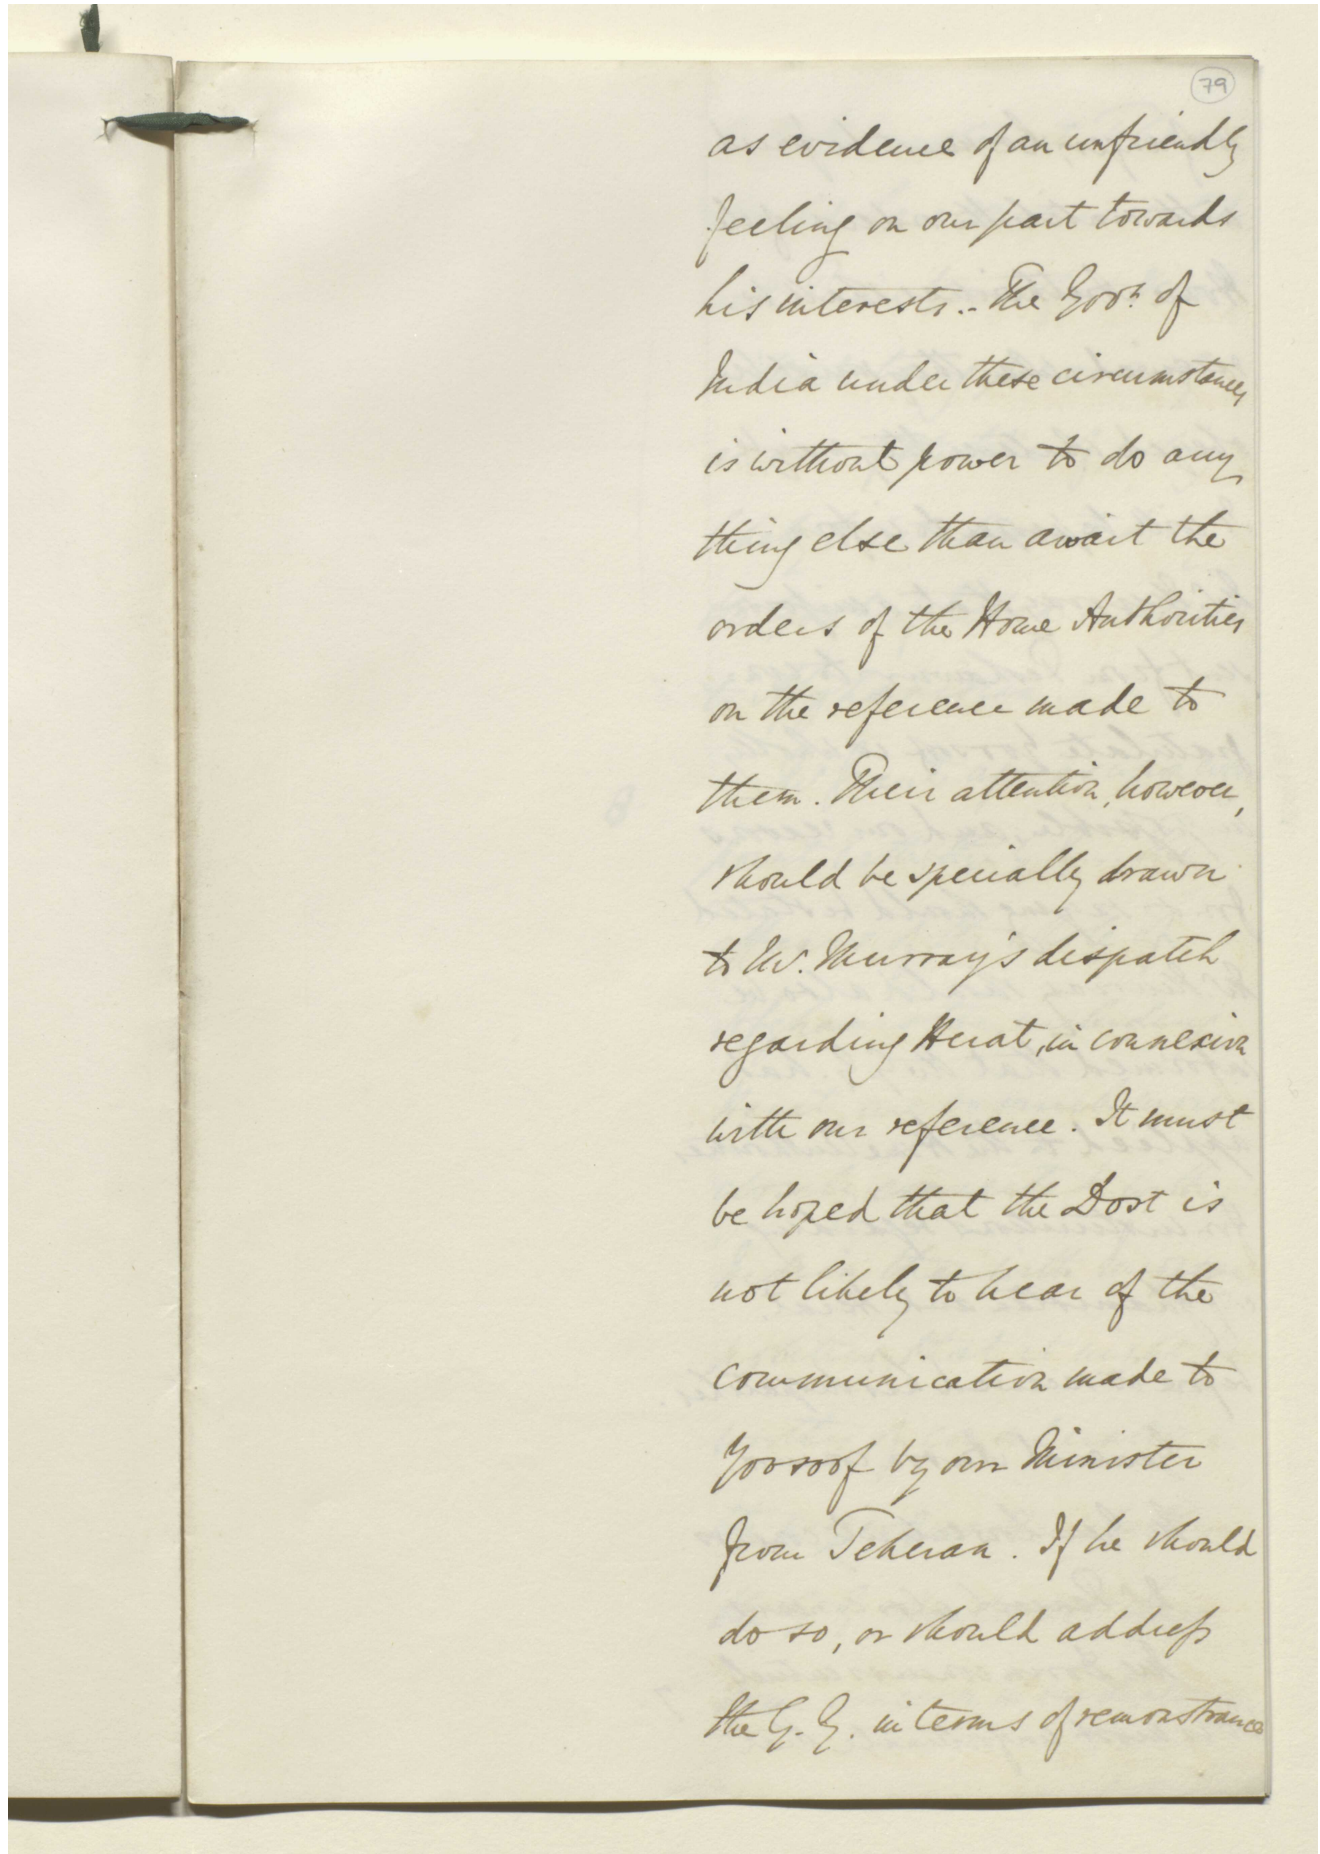 79
as evidence of an unfriendly
feeling on our part towards
his interests.- The Govt. of
India under these circumstances
is without power to do any
thing else than await the
orders of the Home Authorities
on the reference made to
them. Their attention, however,
should be specially drawn
to Mr. Murray's dispatch
regarding Herat, in connexion
with our reference. It must
be hoped that the Dost is
not likely to hear of the
communication made to
Yoosoof by our Minister
from Teheran. If he should
do so, or should address
the G. G. in terms of remonstrance